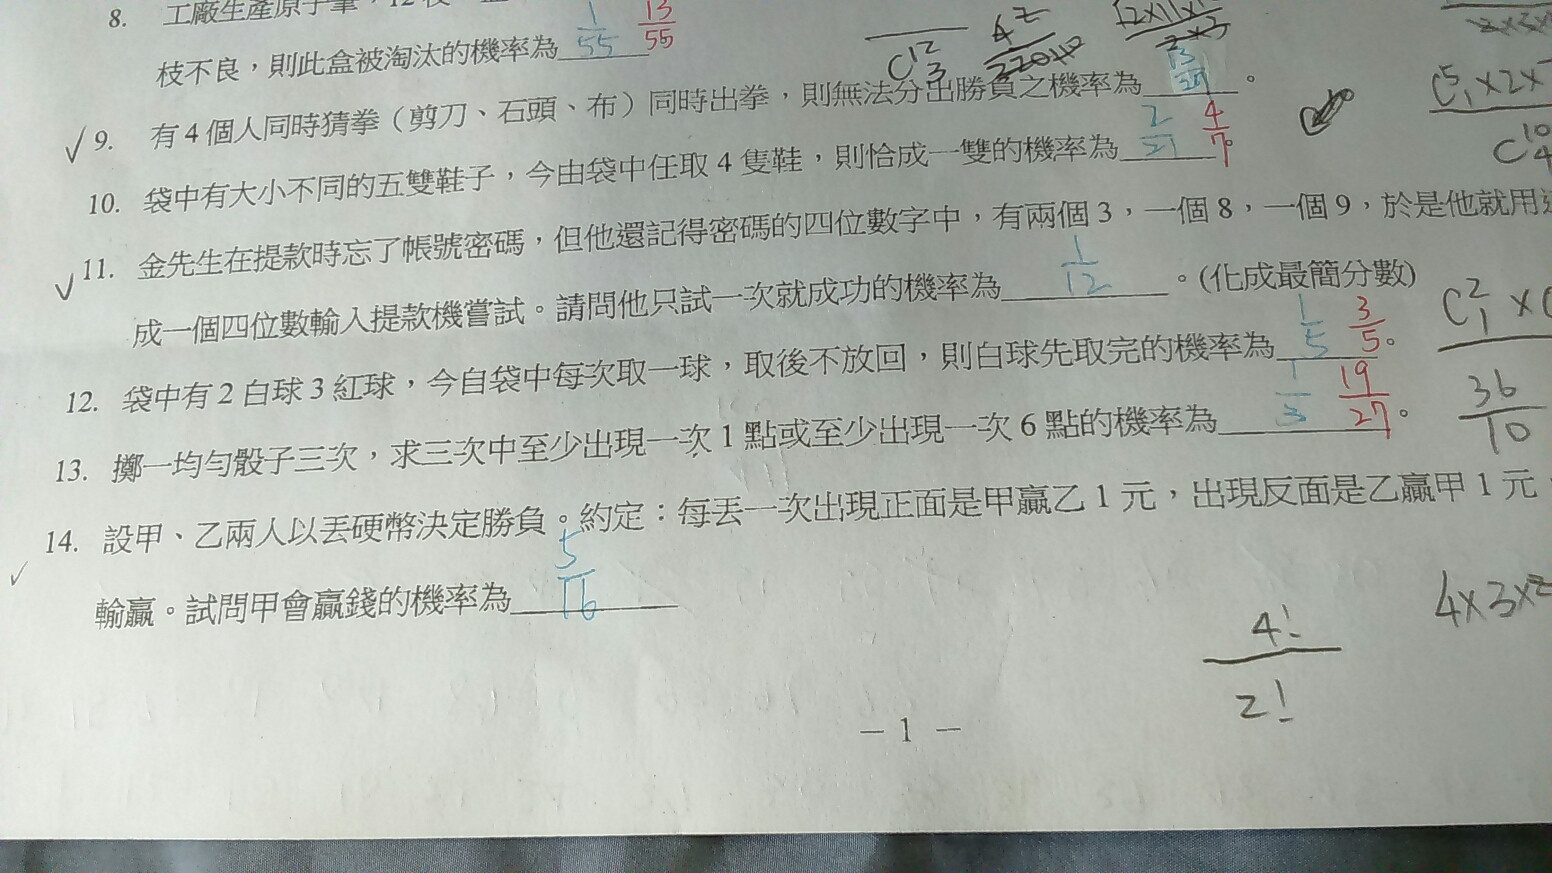 8. 工廠生產原子筆，12
枝不良，則此盒被淘汰的機率為 1/55 13/55
C 12 3
9. 有4個人同時猜拳（剪刀、石頭、布）同時出拳，則無法分出勝負之機率為 。
10. 袋中有大小不同的五雙鞋子，今由袋中任取4隻鞋，則恰成一雙的機率為 2/21 4/7。
11. 金先生在提款時忘了帳號密碼，但他還記得密碼的四位數字中，有兩個3，一個8，一個9，於是他就用
成一個四位數輸入提款機嘗試。請問他只試一次就成功的機率為 1/12 。(化成最簡分數)
12. 袋中有2白球3紅球，今自袋中每次取一球，取後不放回，則白球先取完的機率為 1/5 3/5。
36/10
13. 擲一均勻骰子三次，求三次中至少出現一次1點或至少出現一次6點的機率為 1/3 19/27。
14. 設甲、乙兩人以丟硬幣決定勝負。約定：每丟一次出現正面是甲贏乙1元，出現反面是乙贏甲1元
輸贏。試問甲會贏錢的機率為 5/16
4!/2!
4×3×2
－1－